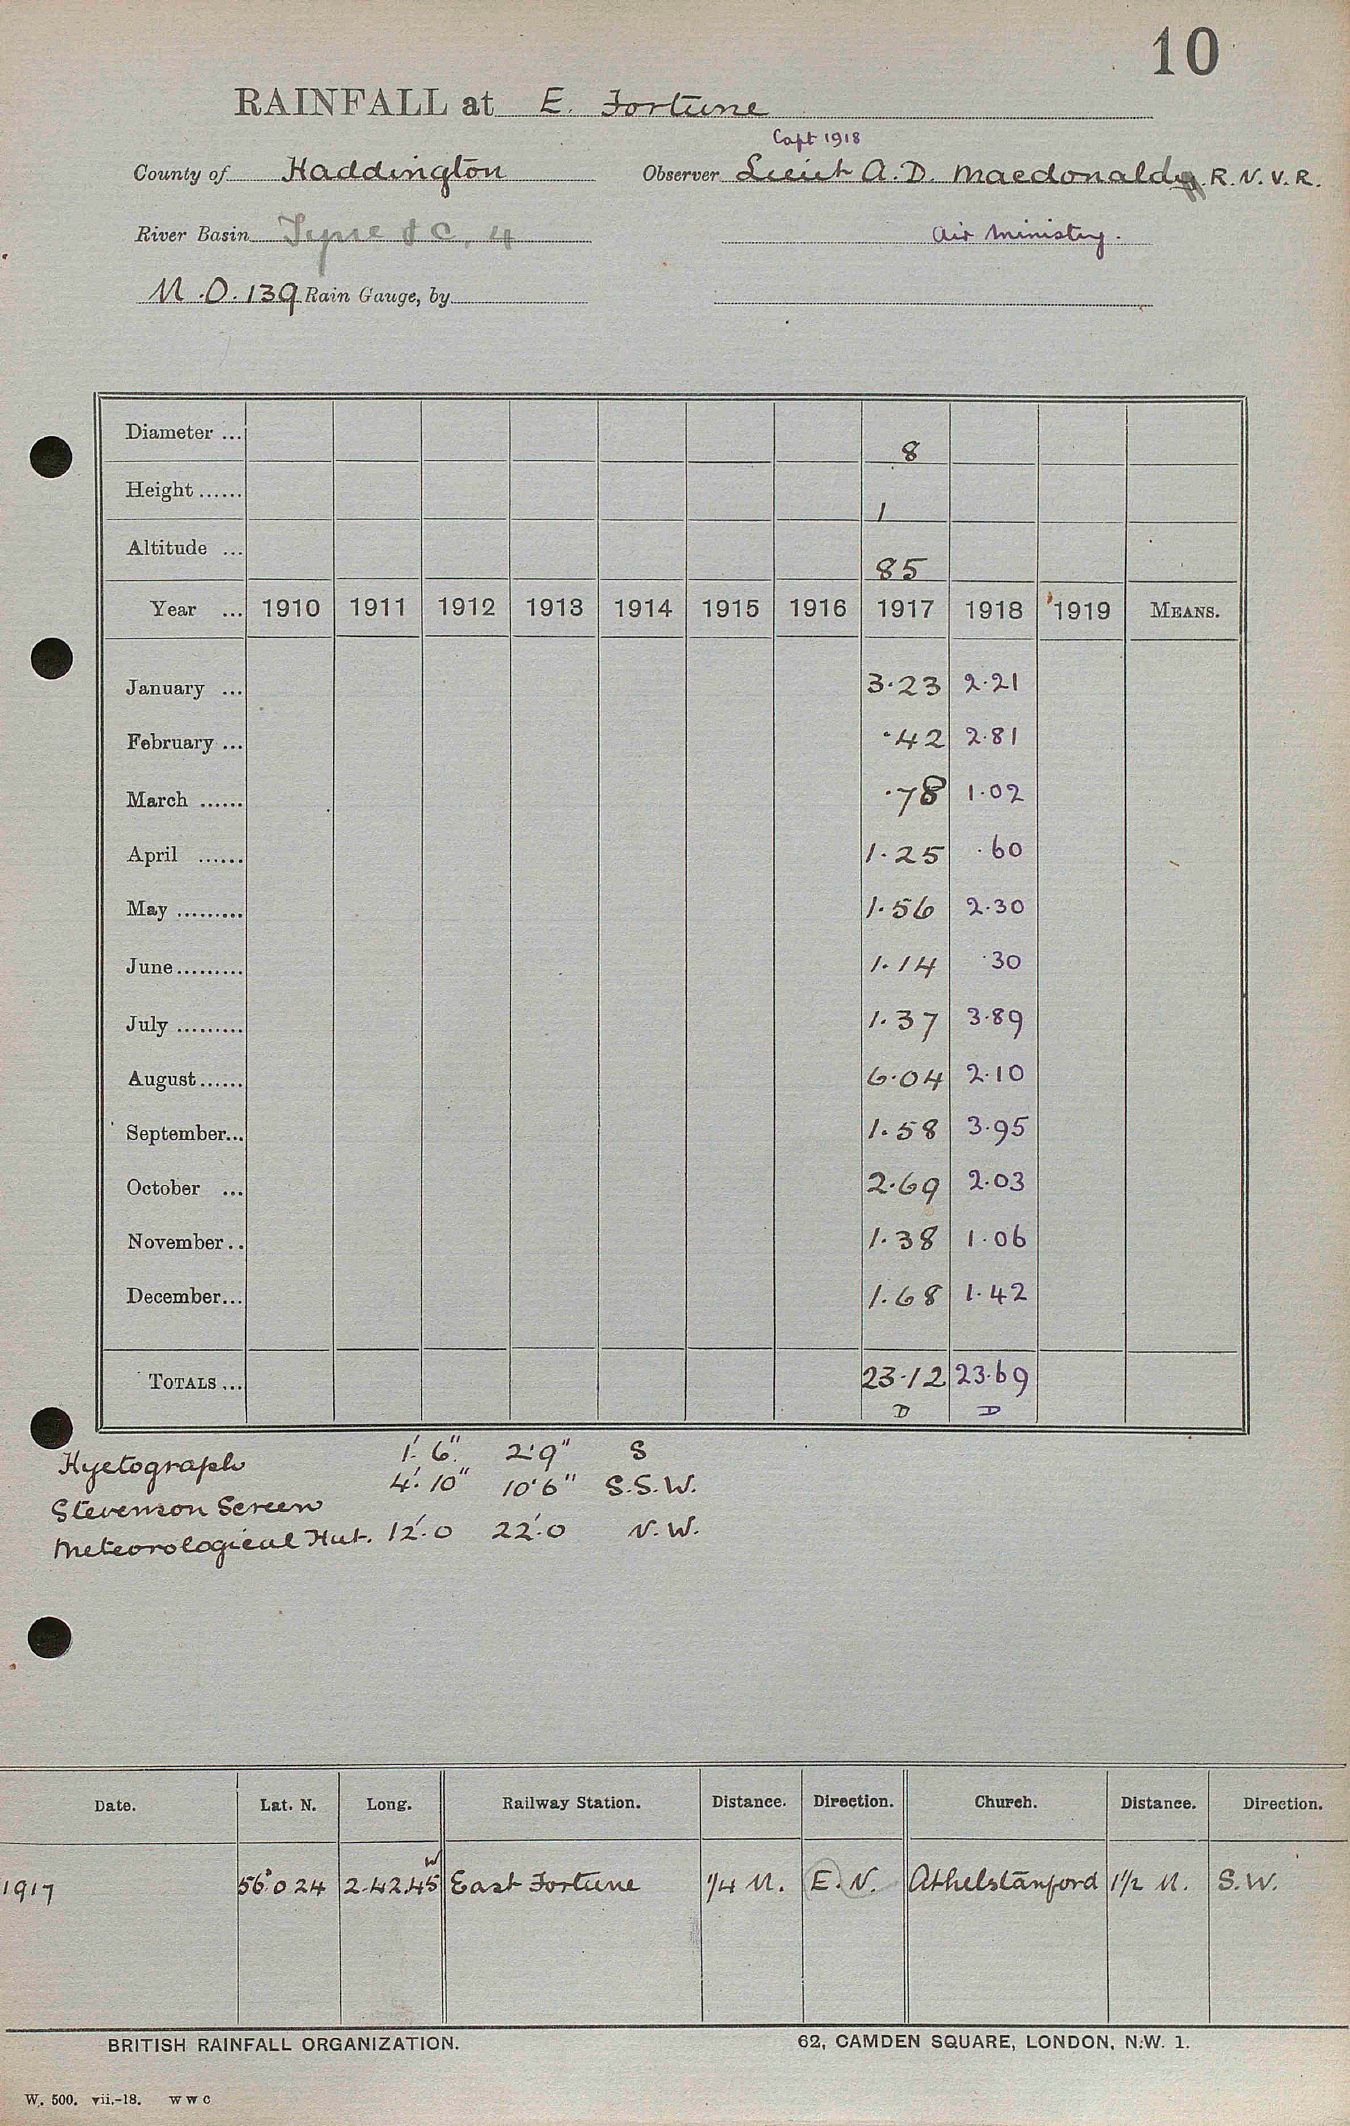 10
RAINFALL at E. Fortune
Capt 1918
County of Haddington Observer Lieut A. D. Macdonald R. N. V. R.
River Basin Tyne & C. 4 Air Ministry.
M.O. 139 Rain Gauge, by
Diameter ... 8
Height ...... 1
Altitude ... 85
Year ... 1910 1911 1912 1913 1914 1915 1916 1917 1918 1919 MEANS.
January ... 3.23 2.21
February ... .42 2.81
March ...... .78 1.02
April ...... 1.25 .60
May ......... 1.56 2.30
June......... 1.14 .30
July ......... 1.37 3.89
August...... 6.04 2.10
September... 1.58 3.95
October ... 2.69 2.03
November.. 1.38 1.06
December... 1.68 1.42
TOTALS... 23.12 23.69
D D
Hyetograph 1'. 6" 2'9" S
Stevenson Screen 4'. 10" 10'6" S.S.W.
Meteorological Hut. 12'.0 22'.0 N.W.
Date. Lat. N. Long. Railway Station. Distance. Direction. Church. Distance. Direction.
1917 56°0 24 2.42.45 W East Fortune 1/4 M. E. N. Athelstanford 1 1/2 M. S.W.
BRITISH RAINFALL ORGANIZATION. 62, CAMDEN SQUARE, LONDON, N.W. 1.
W. 500. vii.-18. W W C